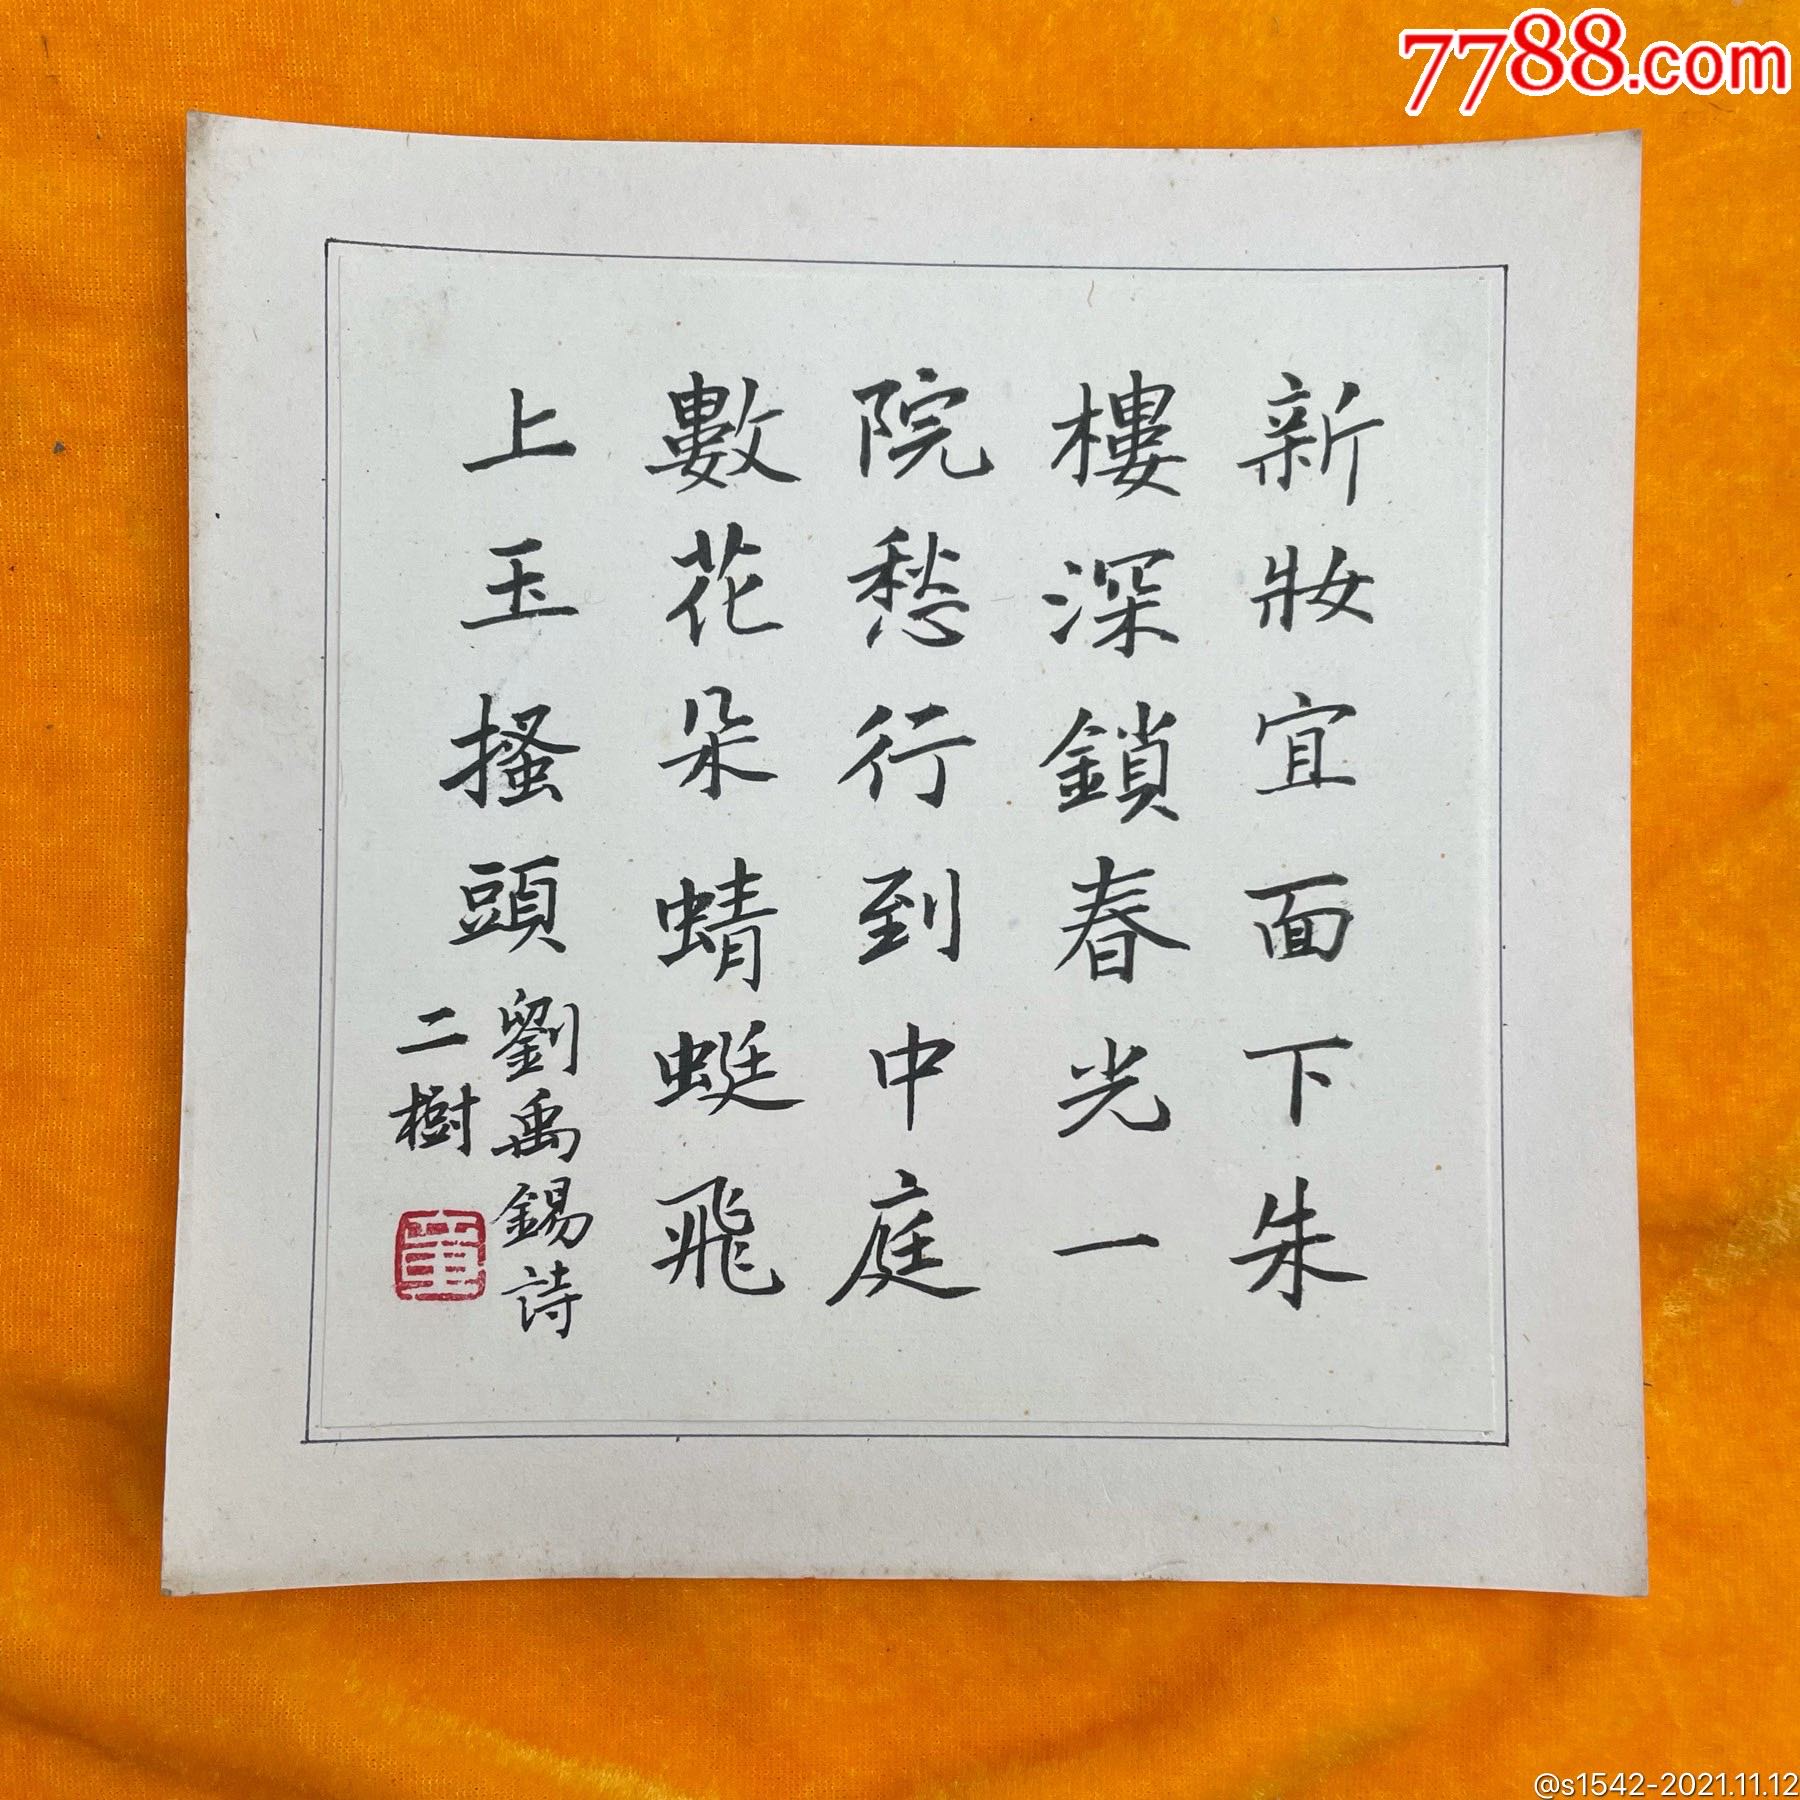 7788.com
新妝宜面下朱
樓深鎖春光一
院愁行到中庭
數花朵蜻蜓飛
上玉搔頭
劉禹錫詩
二樹
@s1542-2021.11.12